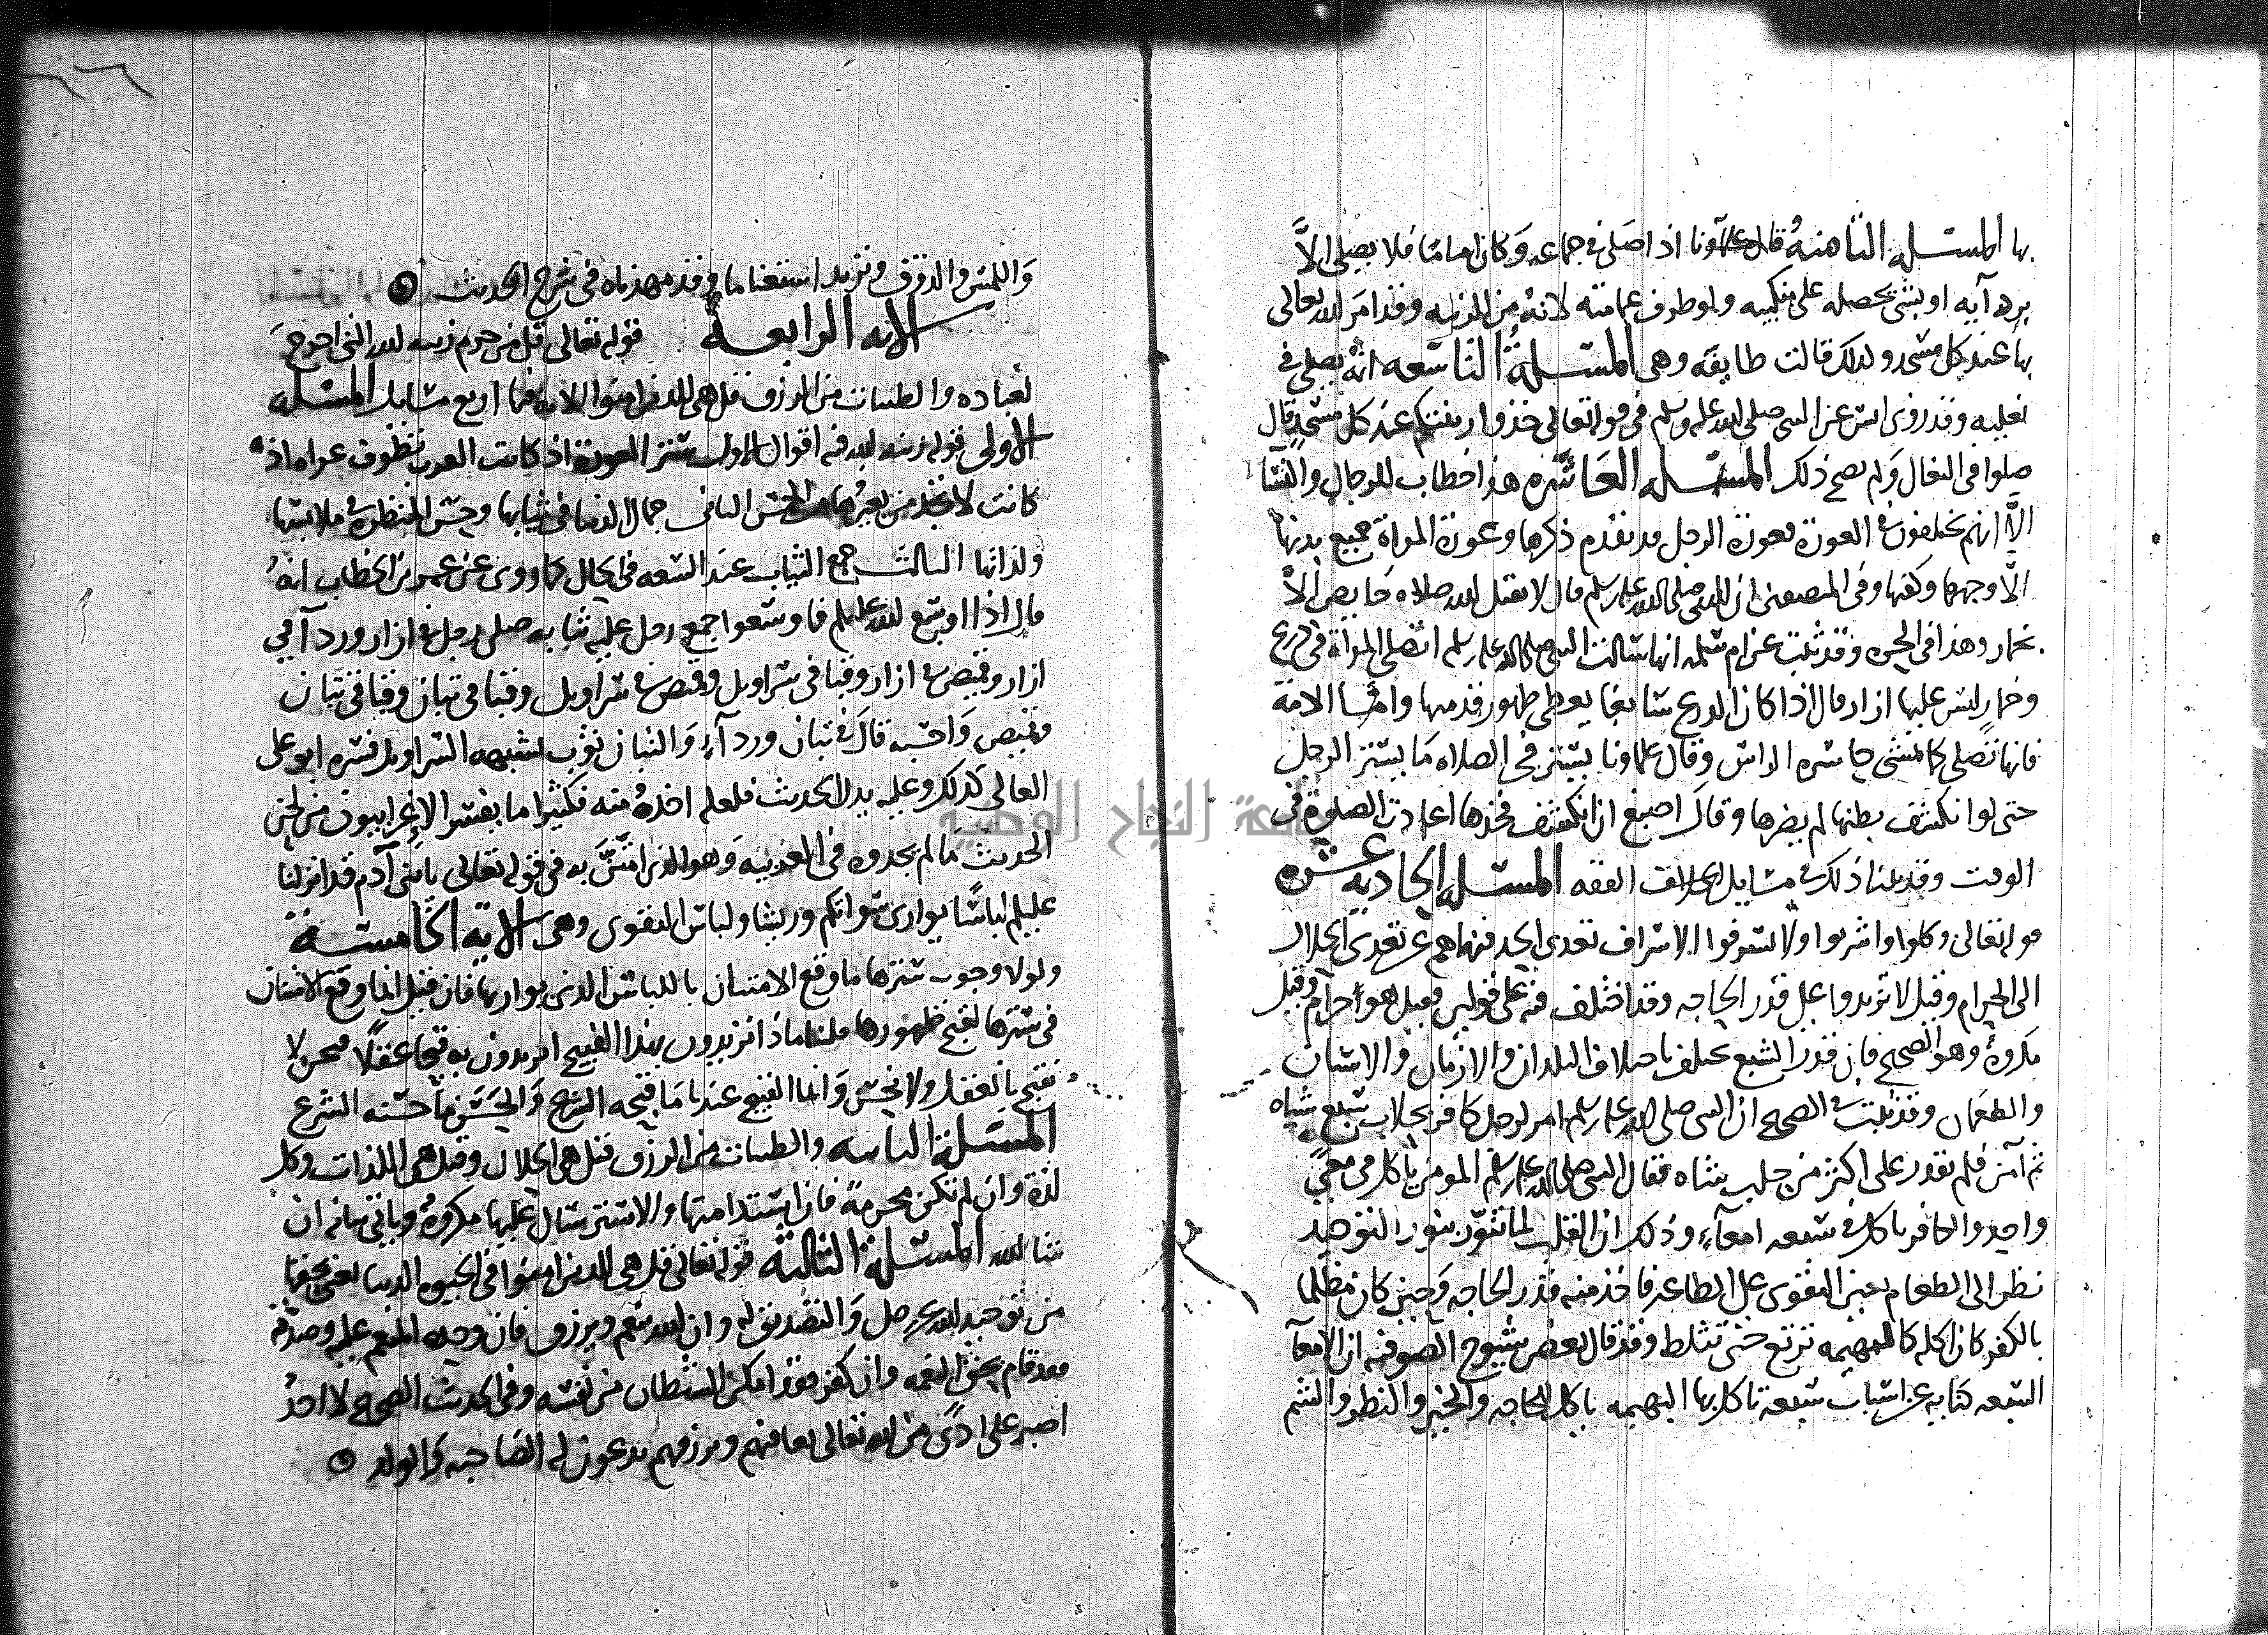 بها المسئله الثامنهُ قال علماونا اذا صَلى في جماعه وَكان اماما فلا يصلى الاَّ
بردآيه او بشي يجعله على منكبيه ولو طرف عمامته لانهُ من الزينه وقد امرَ الله تعالى
بها عند كل مسجد ولذلك قالت طايفه وهى المسئلهُ التاسعه انهُ يصلى في
نعليه وقد روى انس عن النبي صلى الله عليه وسلم في قوله تعالى خذوا زينتكم عند كل مسجد قال
صلوا في النعال وَلم يصح ذلك المسئله العَاشره هذا خطاب للرجال والنسَآ
الاَّ انهم يختلفون في العورة فعورة الرجل قد تقدم ذكرها وعورة المراة جميع بدنها
الاَّ وجهها وكفيها وفي المصنف ان النبي صلى الله عليه وسلم قال لا يقبل الله صلاه حايض الاَّ
بخمار وهذا في الحره وقد ثبت عن ام سلمه انها سالت النبي صلى الله عليه وسلم اتصلي المراة في درع
وخمار ليس عليها ازار قال اذا كان الدرع سابغا يغطى ظهور قدميها وامّا الامة
فانها تصلى كما تمشى حاسره الراس وقال علماونا يستتر في الصلاه مَا يستر الرجل
حتى لو انكشف بطنها لم يضرها وقالَ اصبغ ان انكشف فخذها اعادت الصلوة في
الوقت وقد بينا ذلك في مسايل الخلاف الفقه المسئله الحاديه عشره
قوله تعالى وكلوا واشربوا ولا تسرفوا الاسراف تعدى الحد فنهاهم عن تعدى الحلال
الى الحرام وقيل لا تزيدوا على قدر الحاجه وقد اختلف فيه على قولين فقيل هو حرام وقيل
مكروهٌ وهو الصحيح فان قدر الشبع يختلف باختلاف البلدان والازمان والاسنان
والطعمان وقد ثبت في الصحيح ان النبي صلى الله عليه وسلم امر لرجل كافر بحلاب سبع شياه
ثم آمن فلم يقدر على اكثر من حلب شاه فقال النبي صلى الله عليه وسلم المومن ياكل في معىً
واحد والكافر ياكل في سبعه امعآءٍ وذلك ان القلب لما تنوّر بنور التوحيد
نظر الى الطعام بعين التقوى على الطاعه فاخذ منه قدر الحاجه وَحين كان مظلما
بالكفر كان اكله كالبهيمه ترتع حتى تثلط وقد قال بعض شيوخ الصوفيه ان الامعآ
السبعه كنايه عن اسباب سبعة تاكل بها البهيمه ياكل للحاجه والخبر والنظر والشم
وَاللمس والذوق ويزيد استغناما وقد مهدناه في شرح الحديث
الايه الرابعة قوله تعالى قل من حرم زينه الله التى اخرج
لعباده والطيبات من الرزق قل هى للذين امنوا الايه فيها اربع مسايل المسئله
الاولى قوله زينه الله فيه اقوال الاول ستر العورة اذ كانت العرب تطوف عراه اذ
كانت لا تجد من يعيرها من الحمس الثانى جمال الدنيا في ثيابها وحسن المنظره في ملابسها
ولذاتها الثالث جمع الثياب عند السعه في الحال كما روى عن عمر بن الخطاب انهُ
قال اذا اوسع الله عليكم فاوسعوا جمع رجل عليه ثيابه صلى رجل في ازار وردآ في
ازار وقميص في ازار وقبا في سراويل وقميص في سراويل وقبا في تبان وقبا في تبان
وقميص وَاحسبه قالَ في تبان وردآءٍ وَالتبان ثوب يشبهه السراويل فسره ابو على
القالى كذلك وعليه يدل الحديث فلعله اخذهُ منه فكثيرا ما يفسر الاعرابيون من لحن
الحديث مَا لم يجدوه في العربيه وَهو الذى امتنَّ به في قوله تعالى يا بنى آدم قد انزلنا
عليكم لباسًا يوارى سواتكم وريشا ولباس التقوى وهى الايه الخامسة
ولولا وجوب سترها ما وقع الامتنان باللباس الذى يواريها فان قيل انما وقع الامتنان
في سترها لقبح ظهورها قلنا ماذا تريدون بهذا القبيح اتريدون به قبحا عقلاً فنحن لا
نقبح بالعقل ولا نحسن وَانما القبيح عندنا مَا قبحه الشرع وَالحسَن ما حسّنه الشرع
المسئلة الثانيه والطيبات من الرزق قيل هى الحلال وقيل هى اللذات وكل
لذة وان لم تكن محرمهً فان استدامتها والاسترسال عليها مكروهٌ وياتى بيانه ان
شا الله المسئلة الثالثه قوله تعالى قل هى للذين امنوا في الحيوه الدنيا يعنى بحقها
من توحيد الله عز وجل وَالتصديق له وان الله ينعم ويرزق فان وحده المنعم عليه وصدقه
فقد قام بحق النعمه وان كفر فقد امكن الشيطان من نفسه وفي الحديث الصحيح لا احدُ
اصبر على اذىً من الله تعالى يعافيهم ويرزقهم يدعون له الصَاحبه وَالولد
جامعة النجاح الوطنية